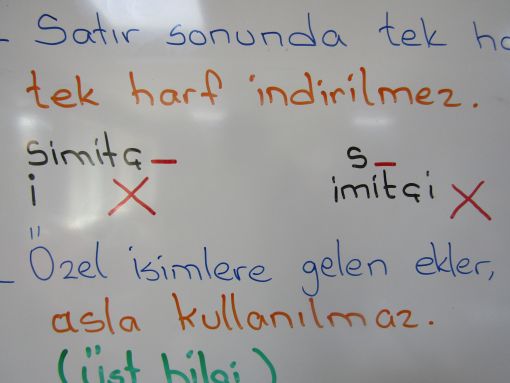 - Satır sonunda tek
tek harf indirilmez.
simitç- s-
i X imitçi X
- Özel isimlere gelen ekler,
asla kullanılmaz.
(üst bilgi)